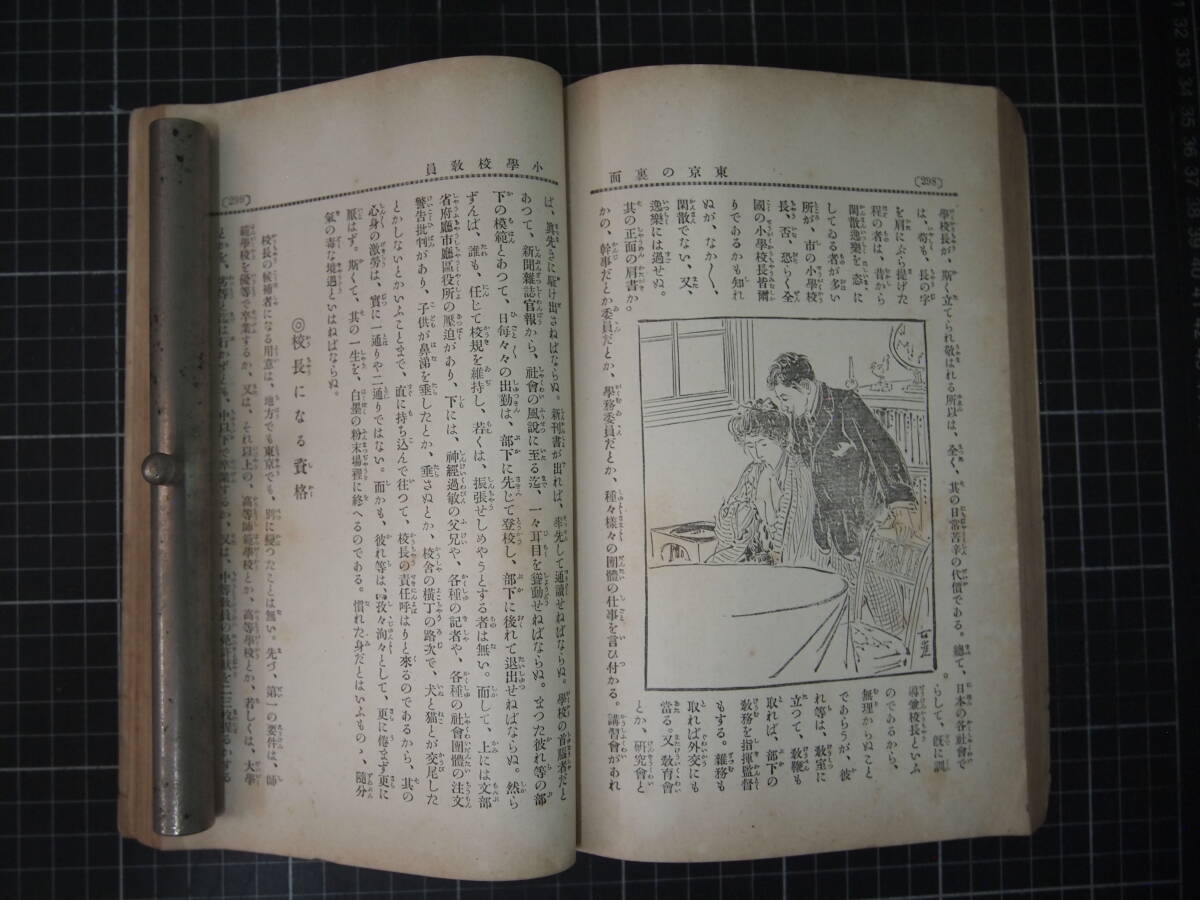 (298)
東京の裏面
學校長が、斯く立てられ敬はれる所以は、全く、其の日常苦辛の代價である。總て、日本の各社會で
は、苟も、長の字
を肩にぶら提げた
程の者は、昔から
閑散逸樂を恣に
してゐる者が多い
所が、市の小學校
長、否、恐らく全
國の小學校長皆爾
りであるかも知れ
ぬが、なか〱、
閑散でない、又、
逸樂には過せぬ。
其の正面の肩書か。
らして、旣に訓
導兼校長といふ
のであるから、
無理からぬこと
であらうが、彼
れ等は、敎室に
立つて、敎鞭も
取れば、部下の
敎務を指揮監督
もする。雜務も
取れば外交にも
當る。又、敎育會
とか、研究會と
かの、幹事だとか委員だとか、學務委員だとか、種々樣々の團體の仕事を言ひ付かる。講習會があれ
小學校敎員
(299)
ば、眞先きに駈け出さねばならぬ。新刊書が出れば、率先して通讀せねばならぬ。學校の首腦者だと
あつて、新聞雜誌官報から、社會の風說に至る迄、一々耳目を聳動せねばならぬ。まつた彼れ等の部
下の模範とあつて、日每々々の出勤は、部下に先じて登校し、部下に後れて退出せねばならぬ。然ら
ずんば、誰も、任じて校規を維持し、若くは、振張せしめやうとする者は無い。而して、上には文部
省府廳市廳區役所の壓迫があり、下には、神經過敏の父兄や、各種の記者や、各種の社會團體の注文
警告批判があり、子供が鼻涕を垂したとか、垂さぬとか、校舍の橫丁の路次で、犬と猫とが交尾した
とかしないとかいふことまで、直に持ち込んで往つて、校長の責任呼はりと來るのであるから、其の
心身の激勞は、實に一通りや二通りではない。而かも、彼れ等は、孜々洵々として、更に倦まず更に
厭はず。斯くて、其の一生を、白墨の粉末場裡に終へるのである。慣れた身だとはいふものゝ、隨分
氣の毒な境遇といはねばならぬ。
◎校長になる資格
校長の候補者になる用意は、地方でも東京でも、別に變つたことは無い。先づ、第一の要件は、師
範學校を優等で卒業するか、又は、それ以上の、高等師範學校とか、高等學校とか、若しくは、大學
とかを、劣等とは行かずとも、中以下で卒業するか、又は、中等敎員の免許狀を二三枚握るかする